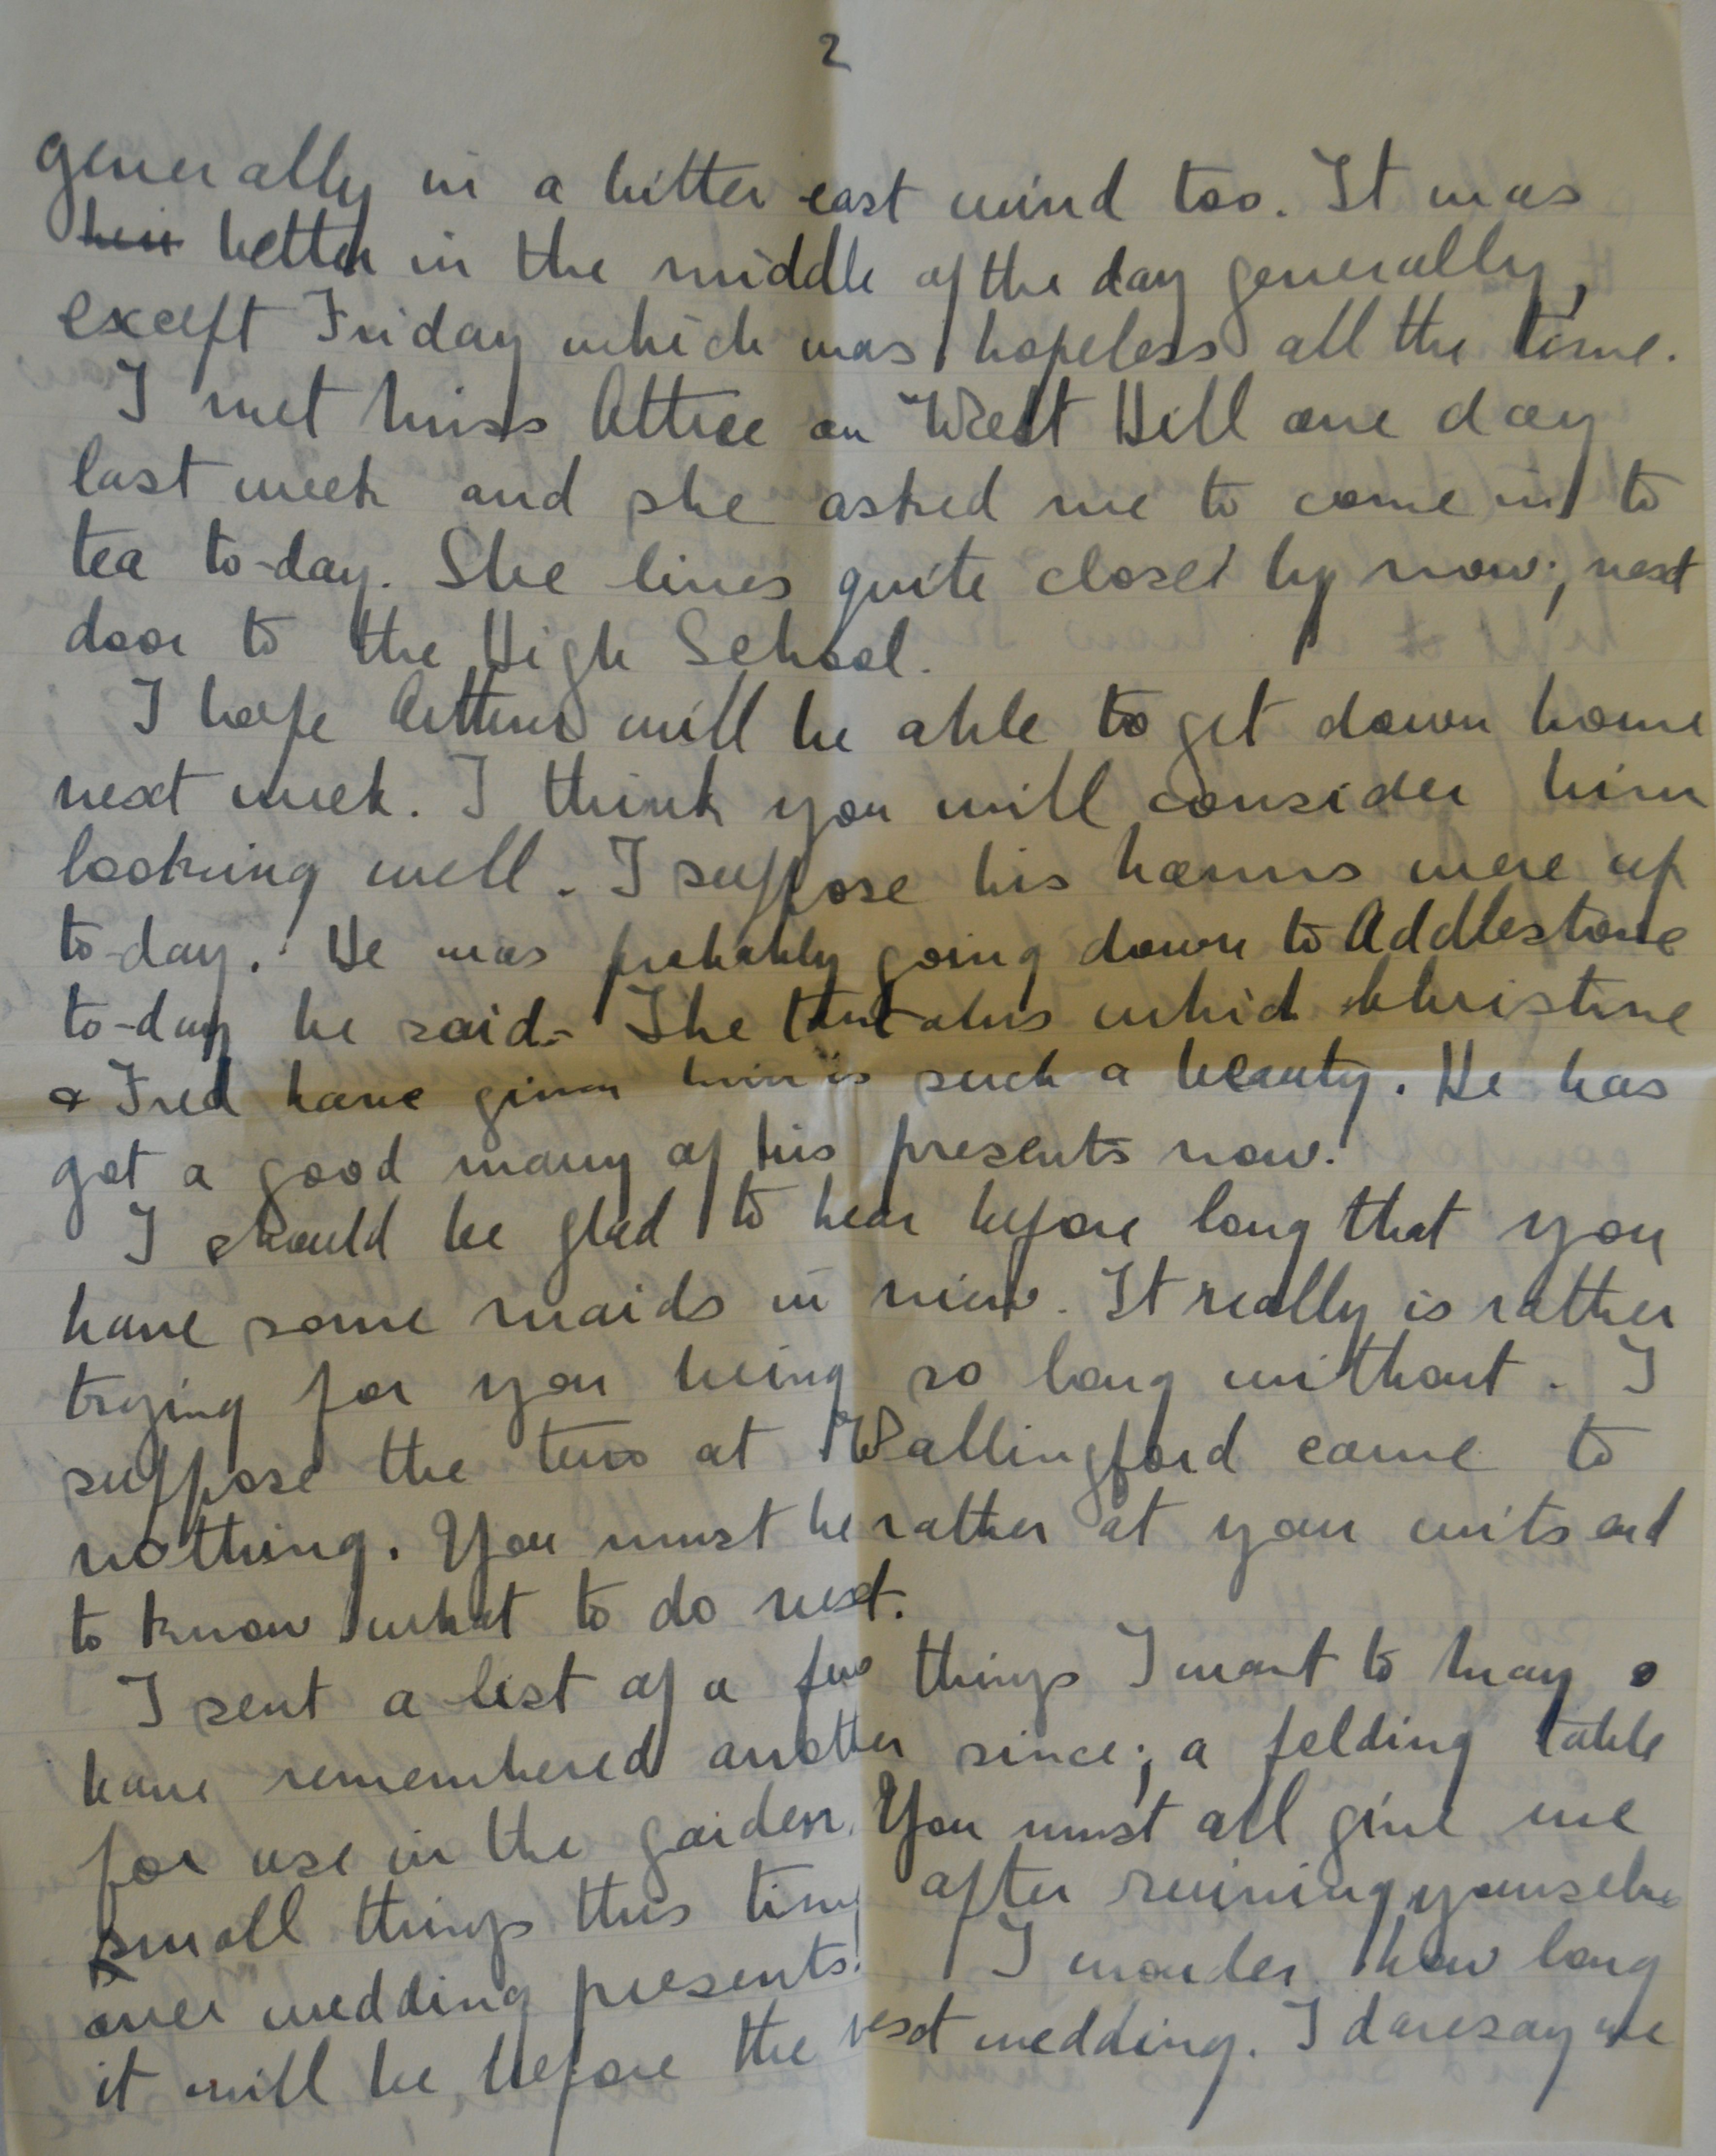 2
generally in a bitter east wind too. It was
better in the middle of the day generally,
except Friday which was hopeless all the time.
I met Miss Attree on West Hill one day
last week and she asked me to come in to
tea to-day. She lives quite close by now; next
door to the High School.
I hope Arthur will be able to get down home
next week. I think you will consider him
looking well. I suppose his banns were up
to-day. He was probably going down to Addlestone
to-day he said. The tantalus which Christine
& Fred have given him is such a beauty. He has
got a good many of his presents now.
I should be glad to hear before long that you
have some maids in view. It really is rather
trying for you being so long without. I
suppose the two at Wallingford came to
nothing. You must be rather at your wits end
to know what to do next.
I sent a list of a few things I want to May &
have remembered another since; a folding table
for use in the garden. You must all give me
small things this time after ruining yourselves
over wedding presents. I wonder how long
it will be before the next wedding. I daresay we